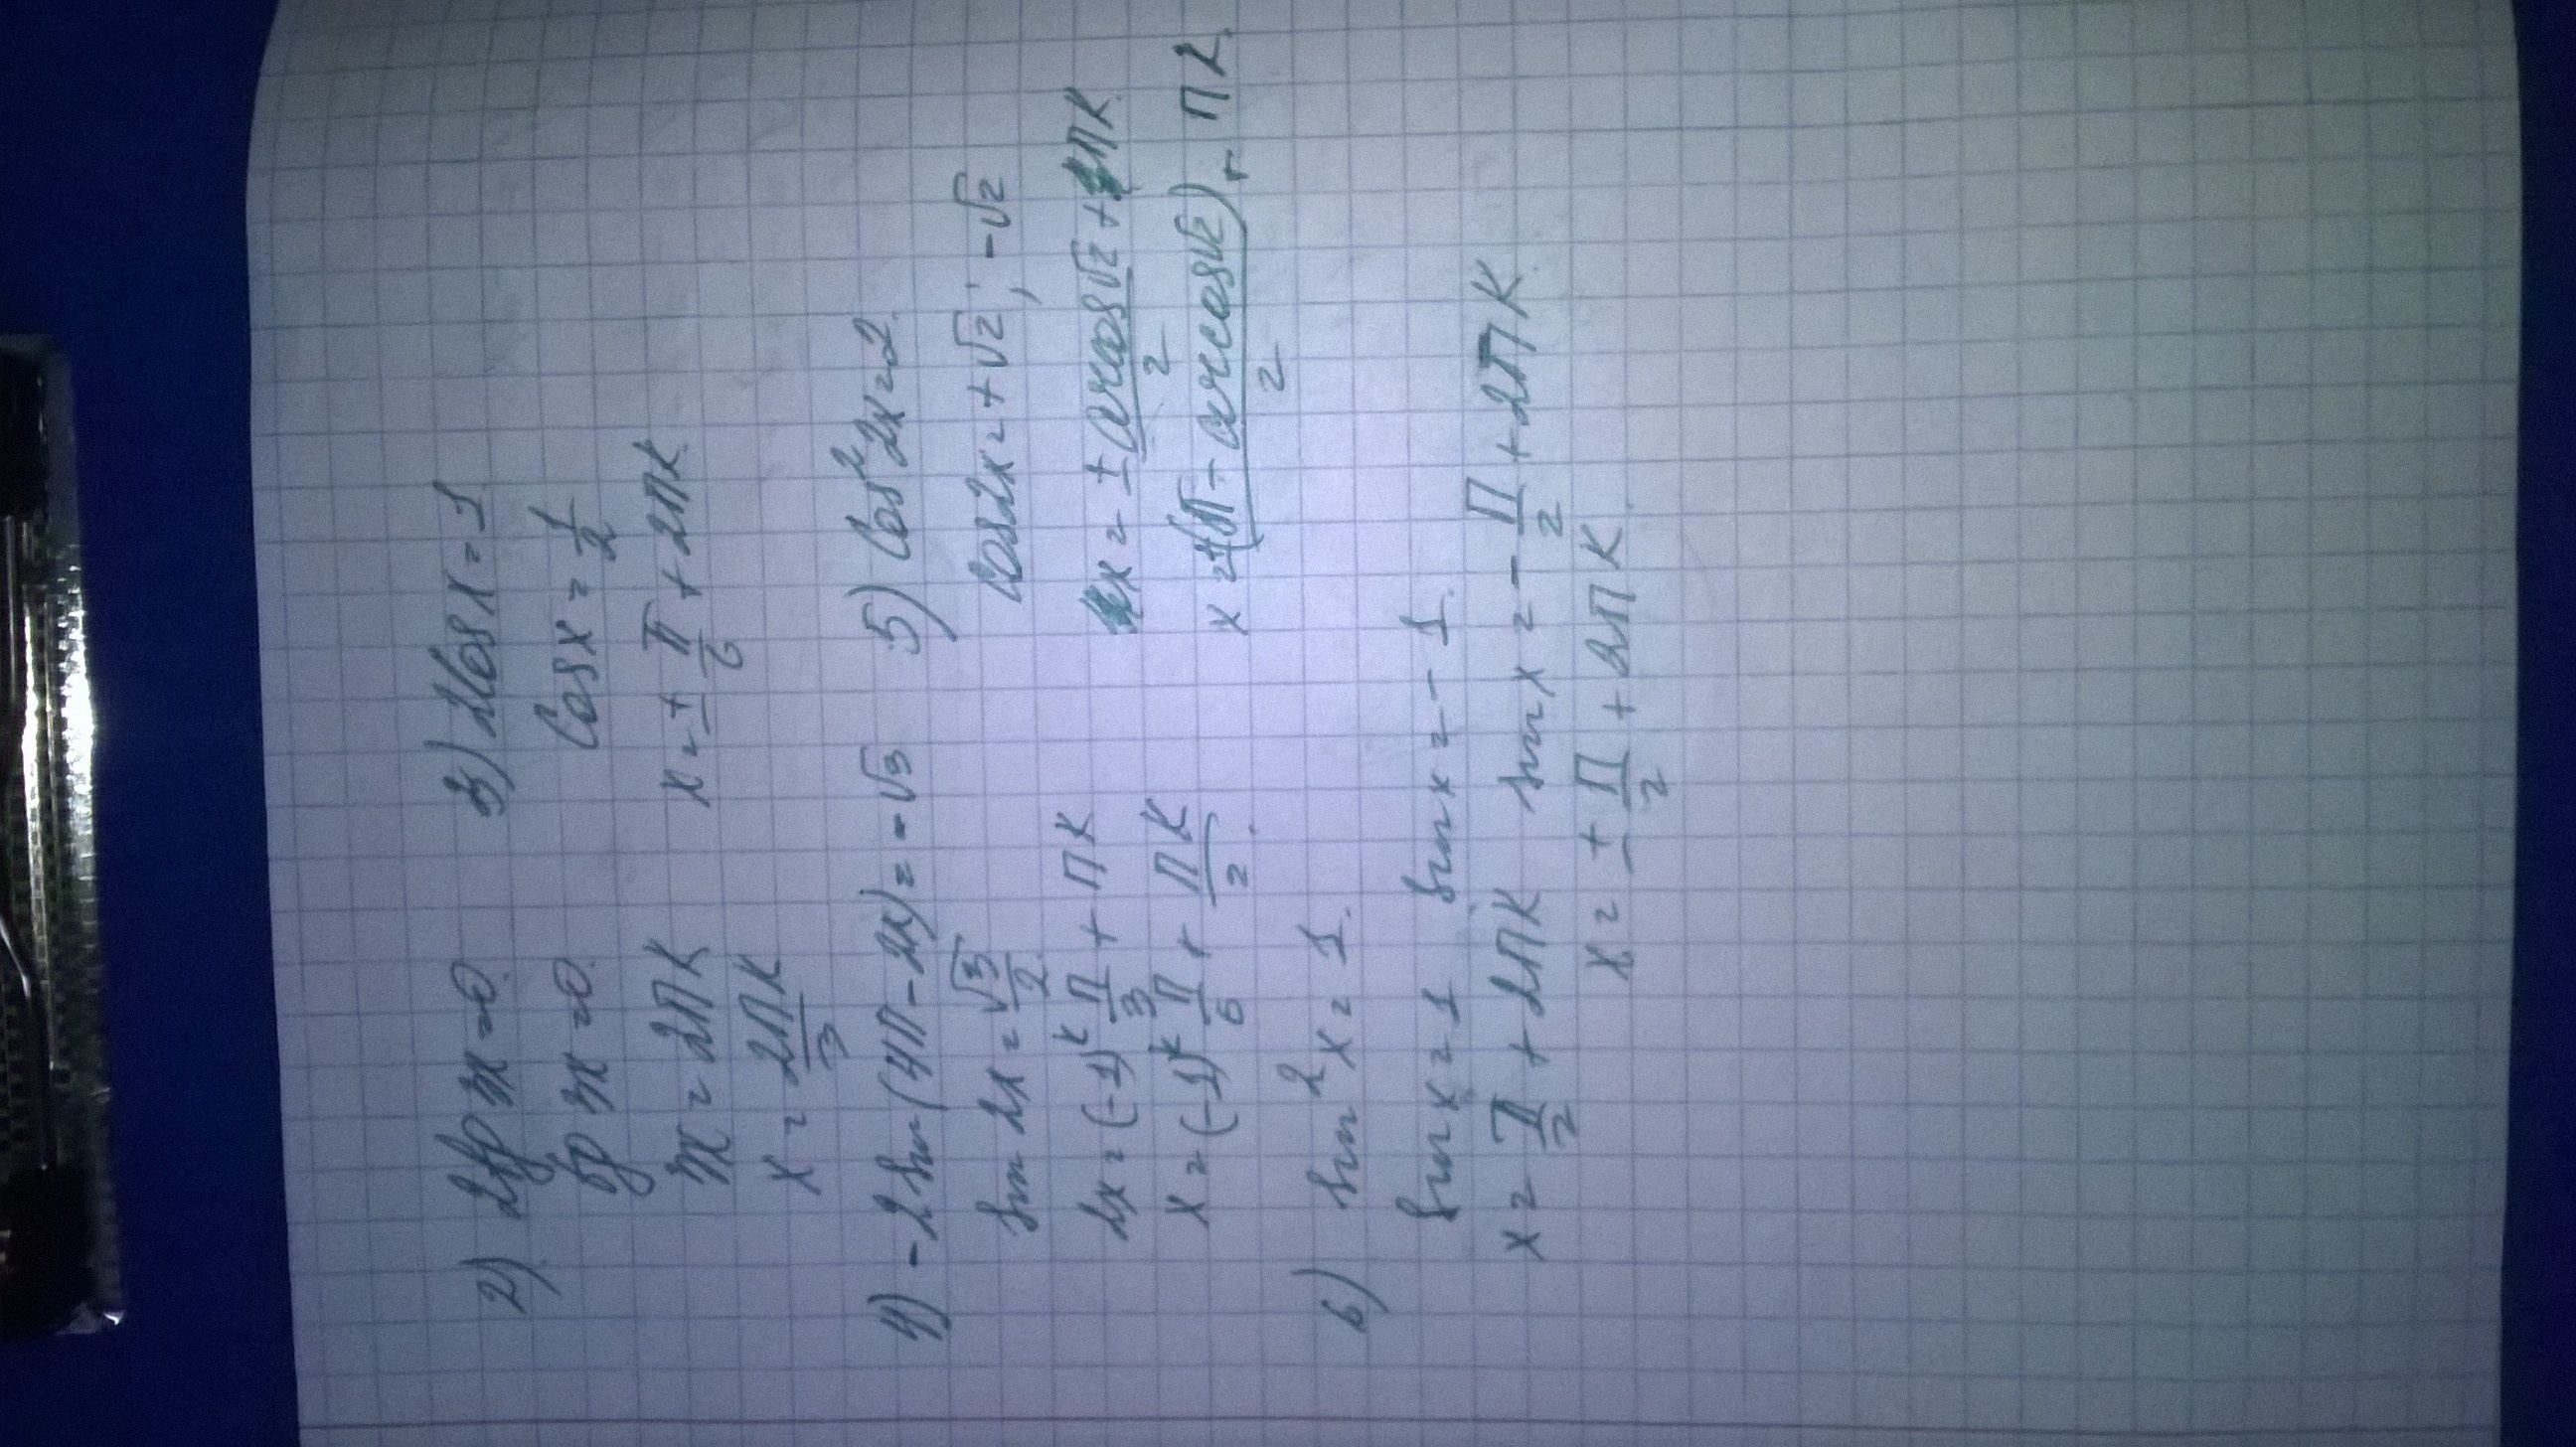 2) 2tg3x=0.
tg3x=0.
3x=2ПК
x=2ПК/3
3) 2Cosx=1
Cosx=1/2
x=±π/6+2ПК
4) -2sin(4П-2x)=-√3
sin2x=√3/2
2x=(-1)^k П/3+ПК
x=(-1)^k П/6+ПК/2.
5) Cos²2x=2.
cos2x=+√2; -√2
x=±arccos√2/2+ПК.
x=±(П-arccos√2)/2+ПК.
6) sin²x=1.
sinx=1 sinx=-1.
x=П/2+2ПК sinx=-П/2+2ПК
x=±П/2+2ПК.